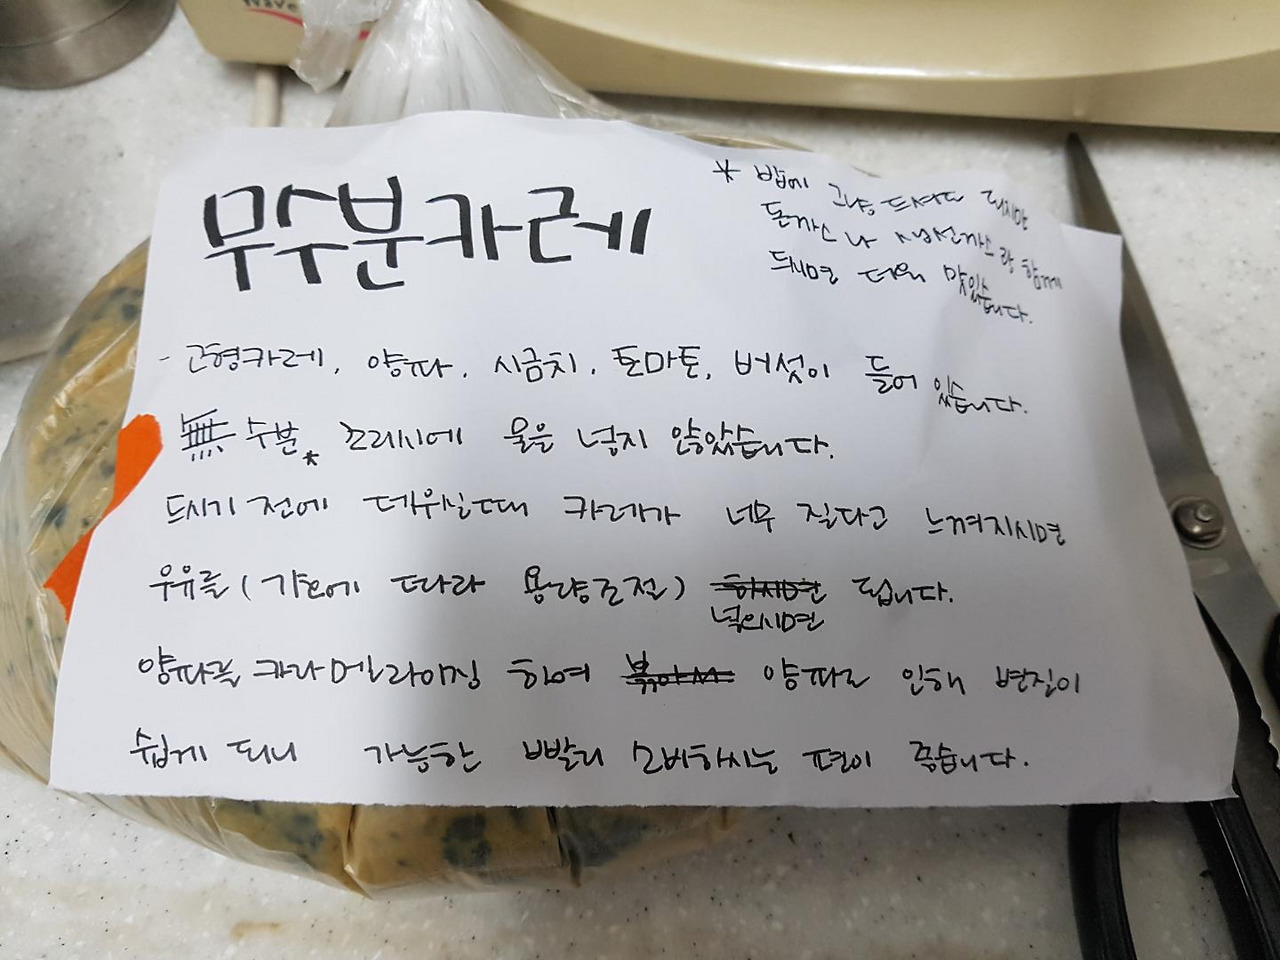 무수분카레
* 밥에 그냥 드셔도 되지만
돈까스나 생선까스랑 함께
드시면 더욱 맛있습니다.
- 고형카레, 양파, 시금치, 토마토, 버섯이 들어 있습니다.
無수분* 조리시에 물을 넣지 않았습니다.
드시기 전에 데우실때 카레가 너무 질다고 느껴지시면
우유를 (기호에 따라 용량조절) 하시면 됩니다.
넣으시면
양파를 카라멜라이징 하여 볶아서 양파로 인해 변질이
쉽게 되니 가능한 빨리 소비하시는 편이 좋습니다.